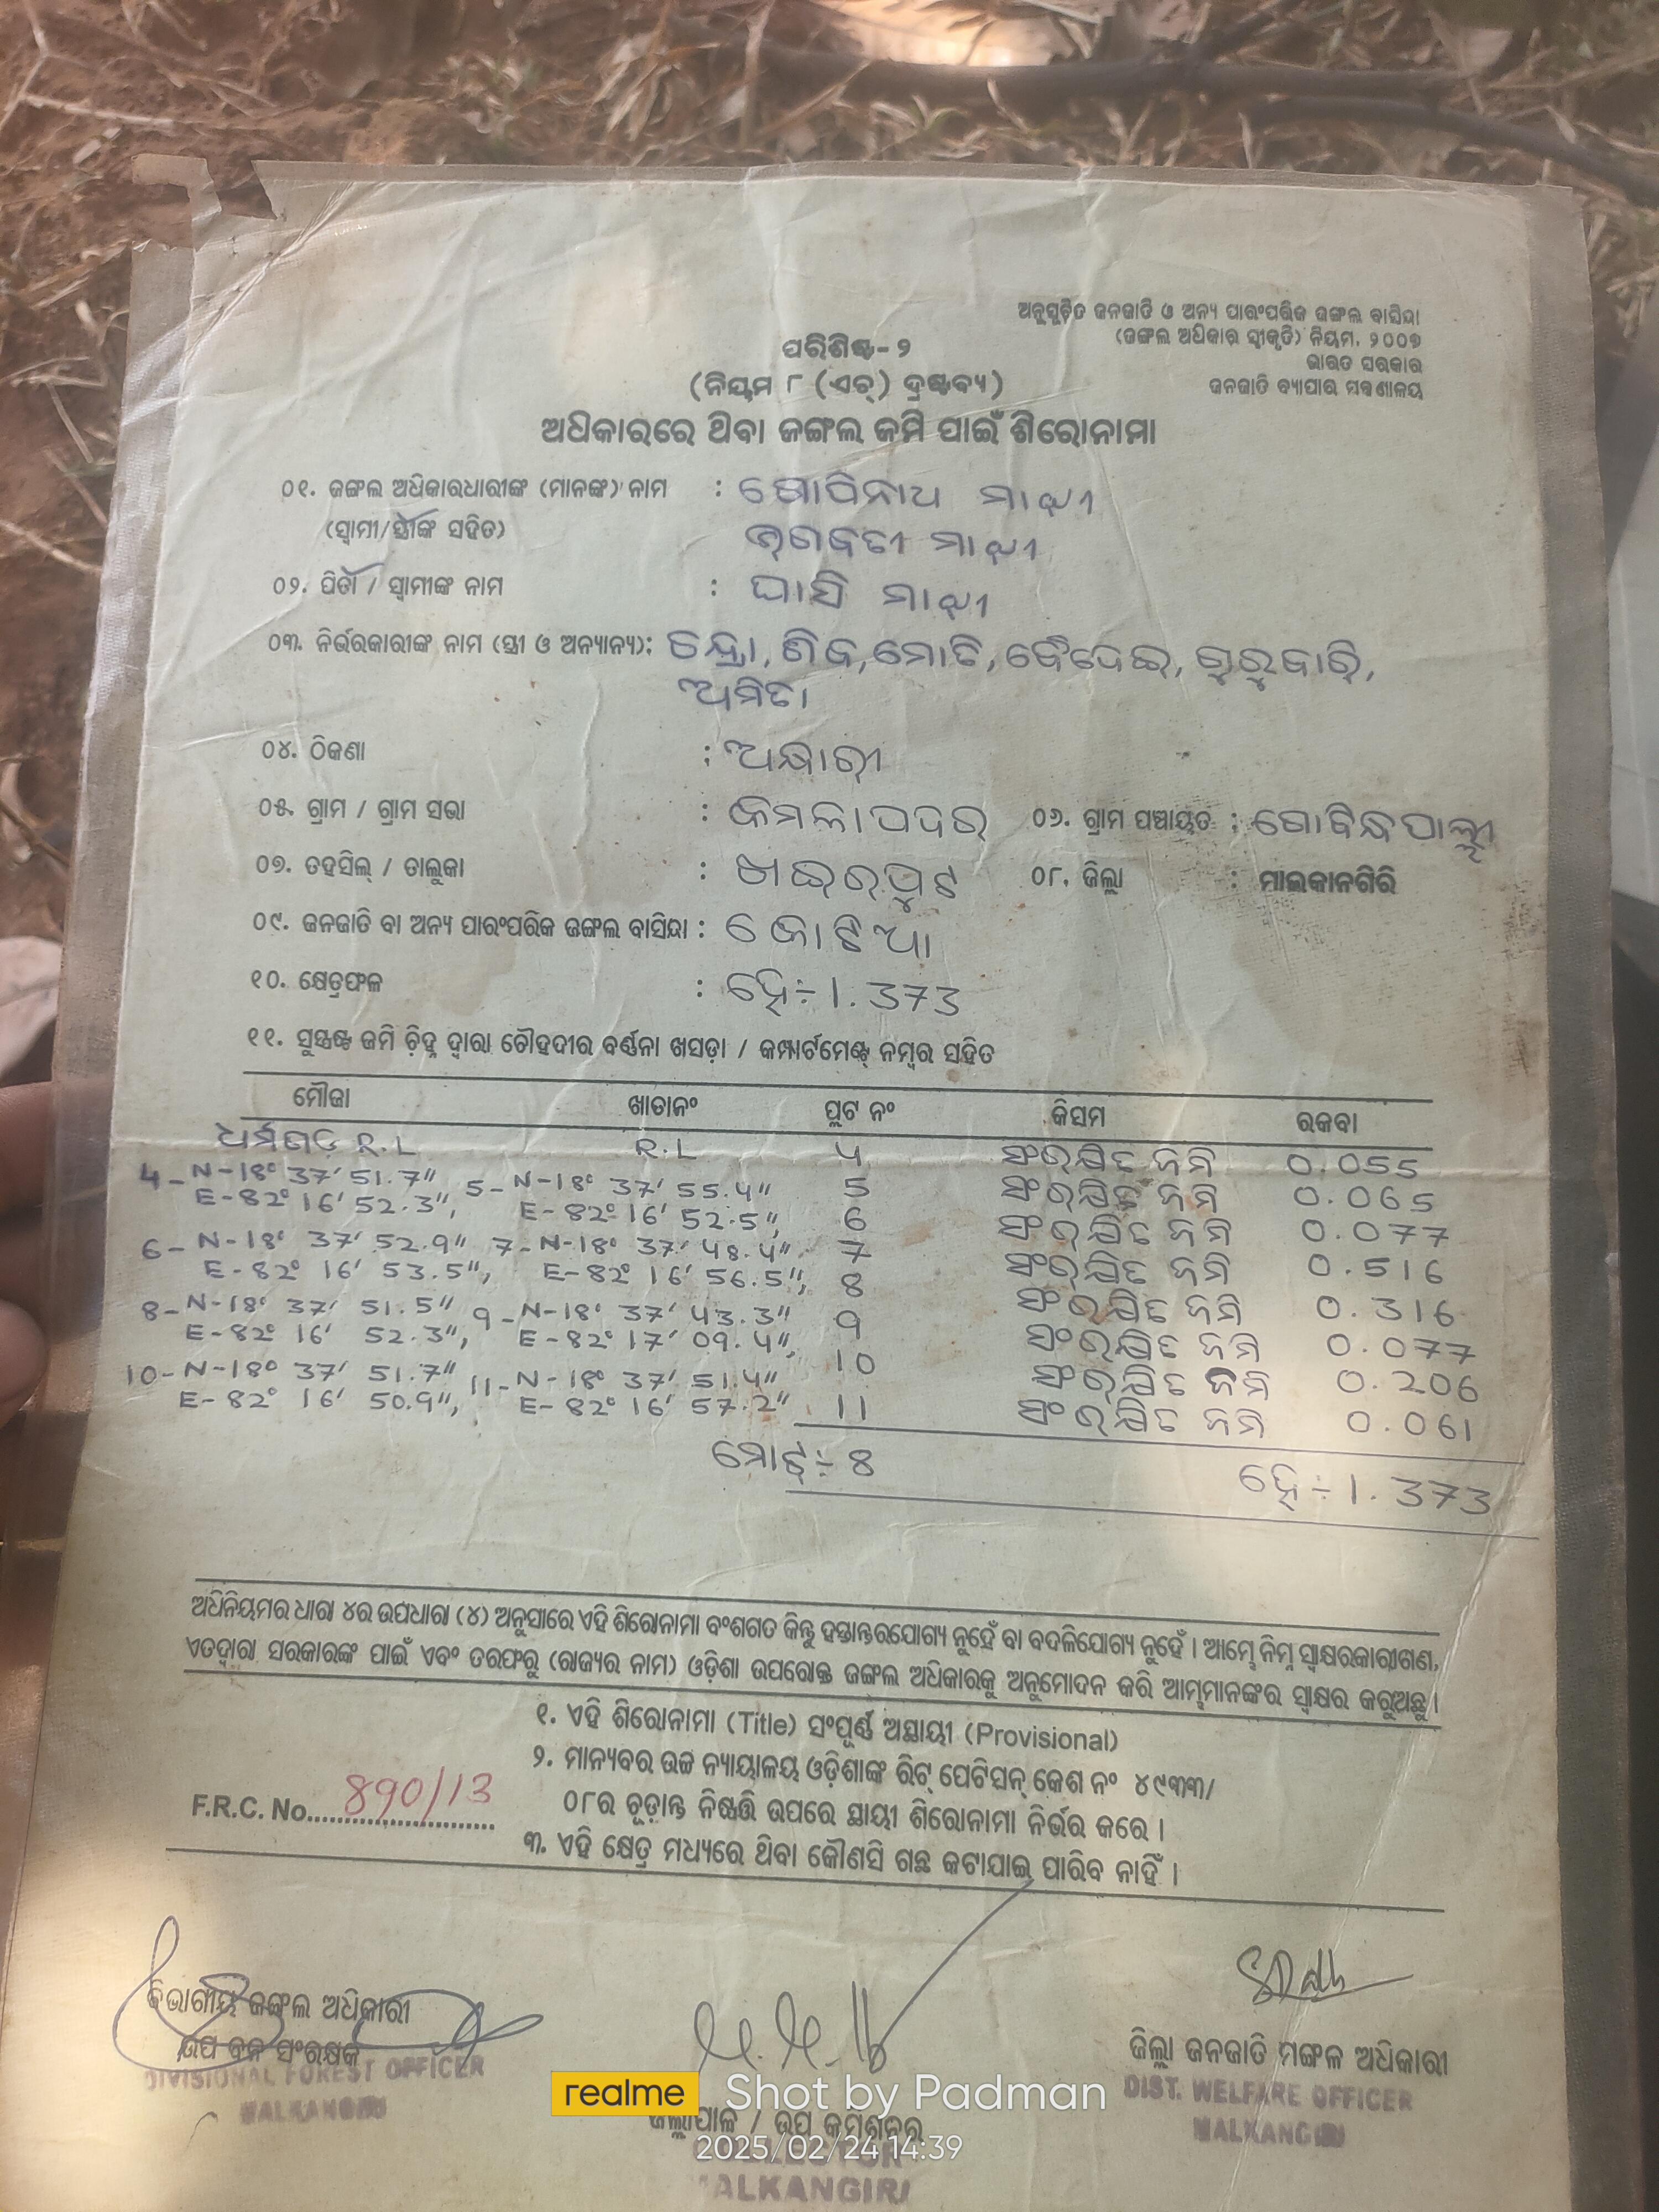 ଅନୁସୂଚିତ ଜନଜାତି ଓ ଅନ୍ୟ ପାରଂପରିକ ଜଙ୍ଗଲ ବାସିନ୍ଦା
(ଜଙ୍ଗଲ ଅଧିକାର ସ୍ୱୀକୃତି) ନିୟମ, ୨୦୦୭
ଭାରତ ସରକାର
ଜନଜାତି ବ୍ୟାପାର ମନ୍ତ୍ରଣାଳୟ
ପରିଶିଷ୍ଟ-୨
(ନିୟମ ୮ (ଏଚ୍) ଦ୍ରଷ୍ଟବ୍ୟ)
ଅଧିକାରରେ ଥିବା ଜଙ୍ଗଲ ଜମି ପାଇଁ ଶିରୋନାମା
୦୧. ଜଙ୍ଗଲ ଅଧିକାରଧାରୀଙ୍କ (ମାନଙ୍କ) ନାମ : ଗୋପିନାଥ ମାଝୀ
(ସ୍ୱାମୀ/ସ୍ତ୍ରୀଙ୍କ ସହିତ) ଗୁଣବତୀ ମାଝୀ
୦୨. ପିତା / ସ୍ୱାମୀଙ୍କ ନାମ : ଘାସି ମାଝୀ
୦୩. ନିର୍ଭରକାରୀଙ୍କ ନାମ (ସ୍ତ୍ରୀ ଓ ଅନ୍ୟାନ୍ୟ): ଚନ୍ଦ୍ରା, ଶିବ, ମୋତି, ଗୁରୁବାରି,
ଅମିତା
୦୪. ଠିକଣା : ଅନ୍ଧାରୀ
୦୫. ଗ୍ରାମ / ଗ୍ରାମ ସଭା : କମଳାପଦର ୦୬. ଗ୍ରାମ ପଞ୍ଚାୟତ : ଗୋବିନ୍ଧପାଲ୍ଲୀ
୦୭. ତହସିଲ୍ / ତାଲୁକା : ଖଇରପୁଟ ୦୮. ଜିଲ୍ଲା : ମାଲକାନଗିରି
୦୯. ଜନଜାତି ବା ଅନ୍ୟ ପାରଂପରିକ ଜଙ୍ଗଲ ବାସିନ୍ଦା : କୋଟିଆ
୧୦. କ୍ଷେତ୍ରଫଳ : ହେ÷1.373
୧୧. ସୁସ୍ପଷ୍ଟ ଜମି ଚିହ୍ନ ଦ୍ୱାରା ଚୌହଦୀର ବର୍ଣ୍ଣନା ଖସଡ଼ା / କମ୍ପାର୍ଟମେଣ୍ଟ୍ ନମ୍ବର ସହିତ
ମୌଜା ଖାତାନଂ ପ୍ଲଟ ନଂ କିସମ ରକବା
ଧର୍ମଗଡ଼ R.L R.L 4 ସଂରକ୍ଷିତ ଜମି 0.055
4-N-18° 37' 51.7" 5-N-18° 37' 55.4" 5 ସଂରକ୍ଷିତ ଜମି 0.065
E-82° 16' 52.3", E-82° 16' 52.5", 6 ସଂରକ୍ଷିତ ଜମି 0.077
6-N-18° 37' 52.9" 7-N-18° 37' 48.4" 7 ସଂରକ୍ଷିତ ଜମି 0.516
E-82° 16' 53.5", E-82° 16' 56.5", 8 ସଂରକ୍ଷିତ ଜମି 0.316
8-N-18° 37' 51.5" 9-N-18° 37' 43.3" 9 ସଂରକ୍ଷିତ ଜମି 0.077
E-82° 16' 52.3", E-82° 17' 09.4", 10 ସଂରକ୍ଷିତ ଜମି 0.206
10-N-18° 37' 51.7" 11-N-18° 37' 51.4" 11 ସଂରକ୍ଷିତ ଜମି 0.061
E-82° 16' 50.9", E-82° 16' 57.2"
ମୋଟ୍÷8 ହେ÷1.373
ଅଧିନିୟମର ଧାରା ୪ର ଉପଧାରା (୪) ଅନୁସାରେ ଏହି ଶିରୋନାମା ବଂଶଗତ କିନ୍ତୁ ହସ୍ତାନ୍ତରଯୋଗ୍ୟ ନୁହେଁ ବା ବଦଳିଯୋଗ୍ୟ ନୁହେଁ । ଆମ୍ଭେ ନିମ୍ନ ସ୍ୱାକ୍ଷରକାରୀଗଣ,
ଏତଦ୍ୱାରା ସରକାରଙ୍କ ପାଇଁ ଏବଂ ତରଫରୁ (ରାଜ୍ୟର ନାମ) ଓଡ଼ିଶା ଉପରୋକ୍ତ ଜଙ୍ଗଲ ଅଧିକାରକୁ ଅନୁମୋଦନ କରି ଆମ୍ଭମାନଙ୍କର ସ୍ୱାକ୍ଷର କରୁଅଛୁ ।
୧. ଏହି ଶିରୋନାମା (Title) ସଂପୂର୍ଣ୍ଣ ଅସ୍ଥାୟୀ (Provisional)
୨. ମାନ୍ୟବର ଉଚ୍ଚ ନ୍ୟାୟାଳୟ ଓଡ଼ିଶାଙ୍କ ରିଟ୍ ପେଟିସନ୍ କେଶ ନଂ ୪୯୩୩/
୦୮ର ଚୂଡ଼ାନ୍ତ ନିଷ୍ପତ୍ତି ଉପରେ ସ୍ଥାୟୀ ଶିରୋନାମା ନିର୍ଭର କରେ ।
F.R.C. No. 890/13
୩. ଏହି କ୍ଷେତ୍ର ମଧ୍ୟରେ ଥିବା କୌଣସି ଗଛ କଟାଯାଇ ପାରିବ ନାହିଁ ।
ବିଭାଗୀୟ ଜଙ୍ଗଲ ଅଧିକାରୀ
ଉପ ବନ ସଂରକ୍ଷକ
DIVISIONAL FOREST OFFICER
MALKANGIRI
ଜିଲ୍ଲା ଜନଜାତି ମଙ୍ଗଳ ଅଧିକାରୀ
DIST. WELFARE OFFICER
MALKANGIRI
realme Shot by Padman
ଜିଲ୍ଲାପାଳ / ଉପ କମିଶନର
2025/02/24 14:39
COLLECTOR
MALKANGIRI